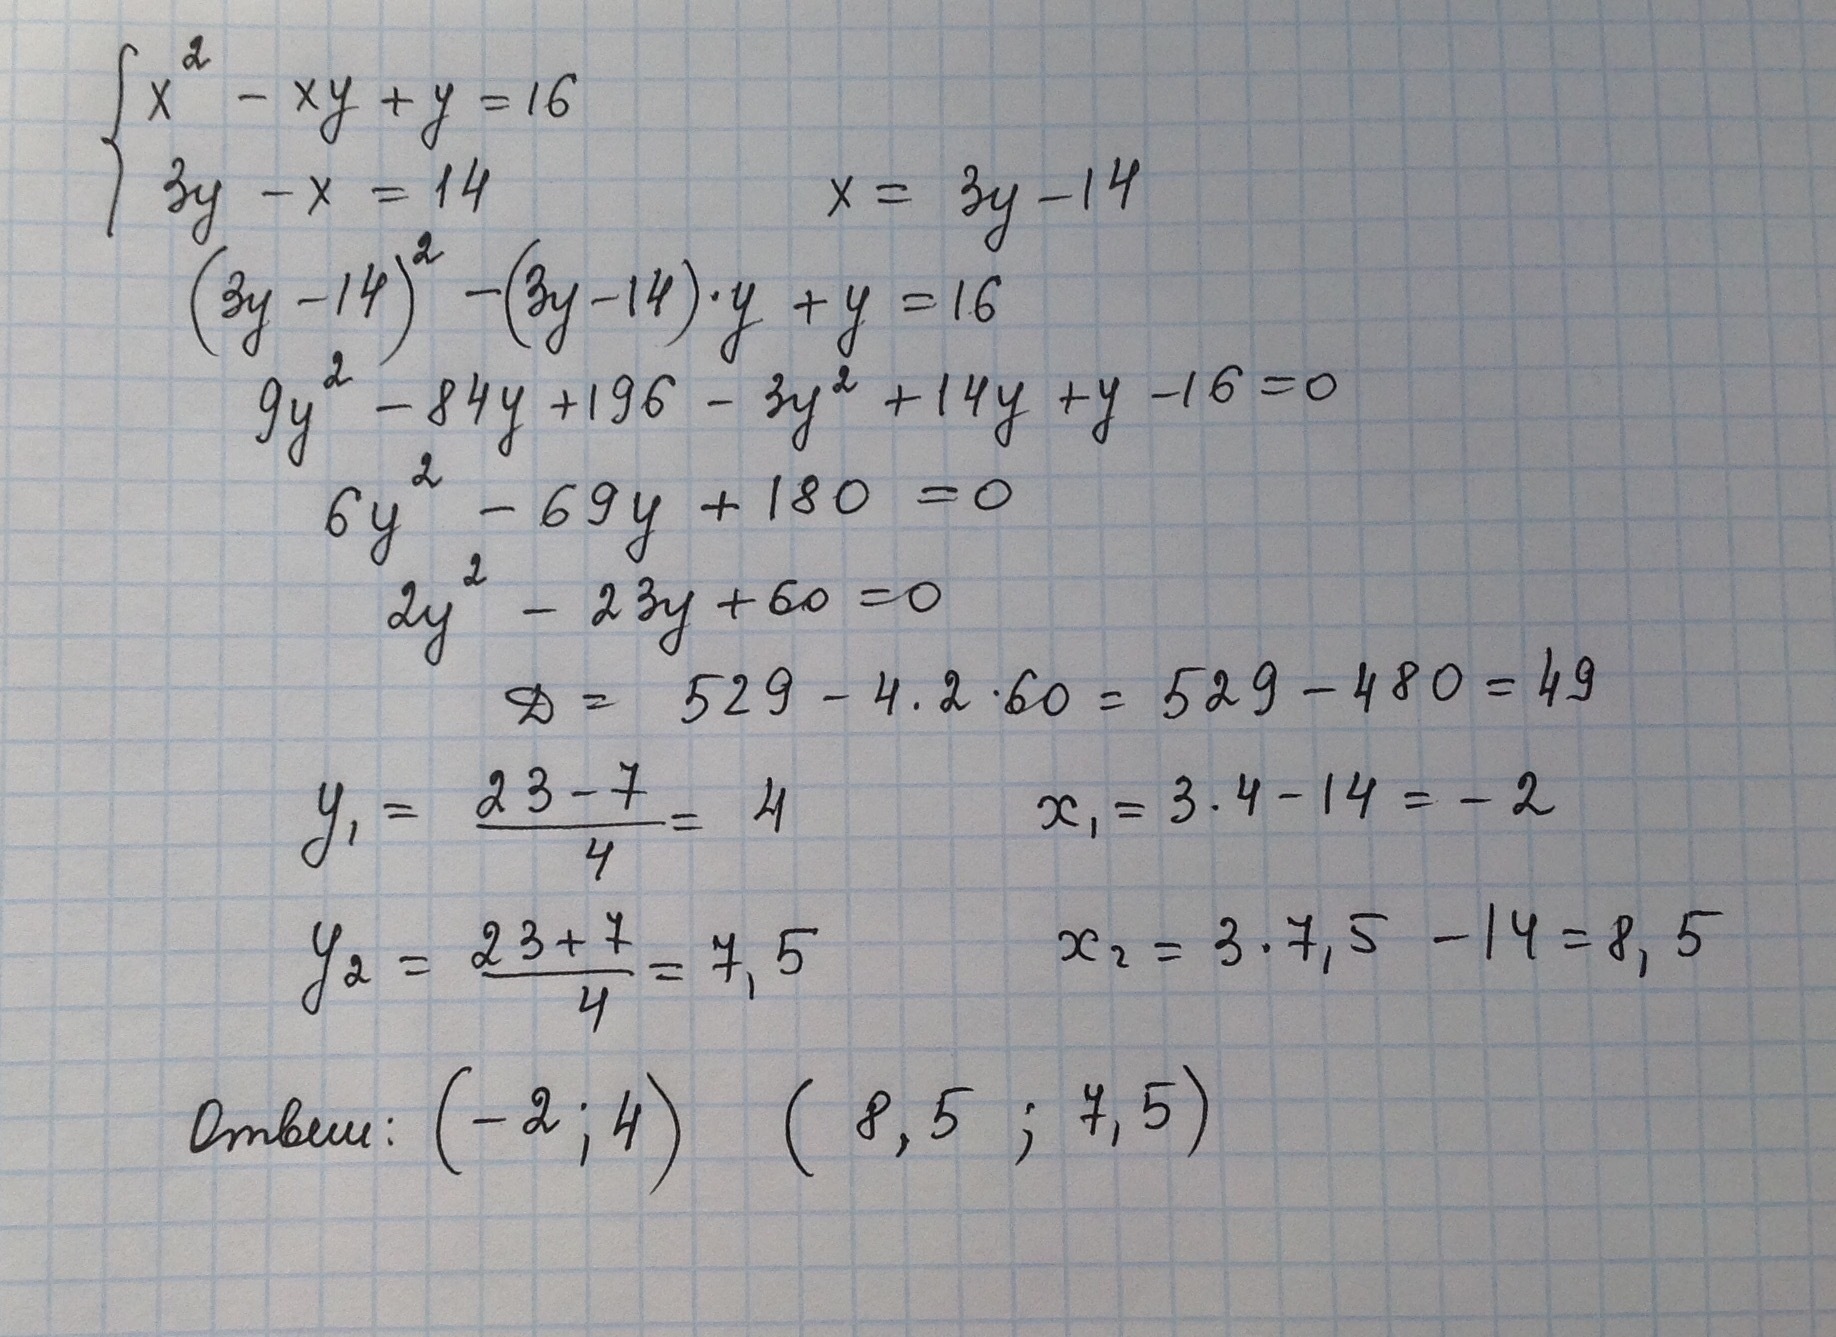 { x² - xy + y = 16
3y - x = 14 x = 3y - 14
(3y - 14)² - (3y - 14)·y + y = 16
9y² - 84y + 196 - 3y² + 14y + y - 16 = 0
6y² - 69y + 180 = 0
2y² - 23y + 60 = 0
D = 529 - 4·2·60 = 529 - 480 = 49
y₁ = (23 - 7)/4 = 4 x₁ = 3·4 - 14 = -2
y₂ = (23 + 7)/4 = 7,5 x₂ = 3·7,5 - 14 = 8,5
Ответ: (-2; 4) (8,5 ; 7,5)